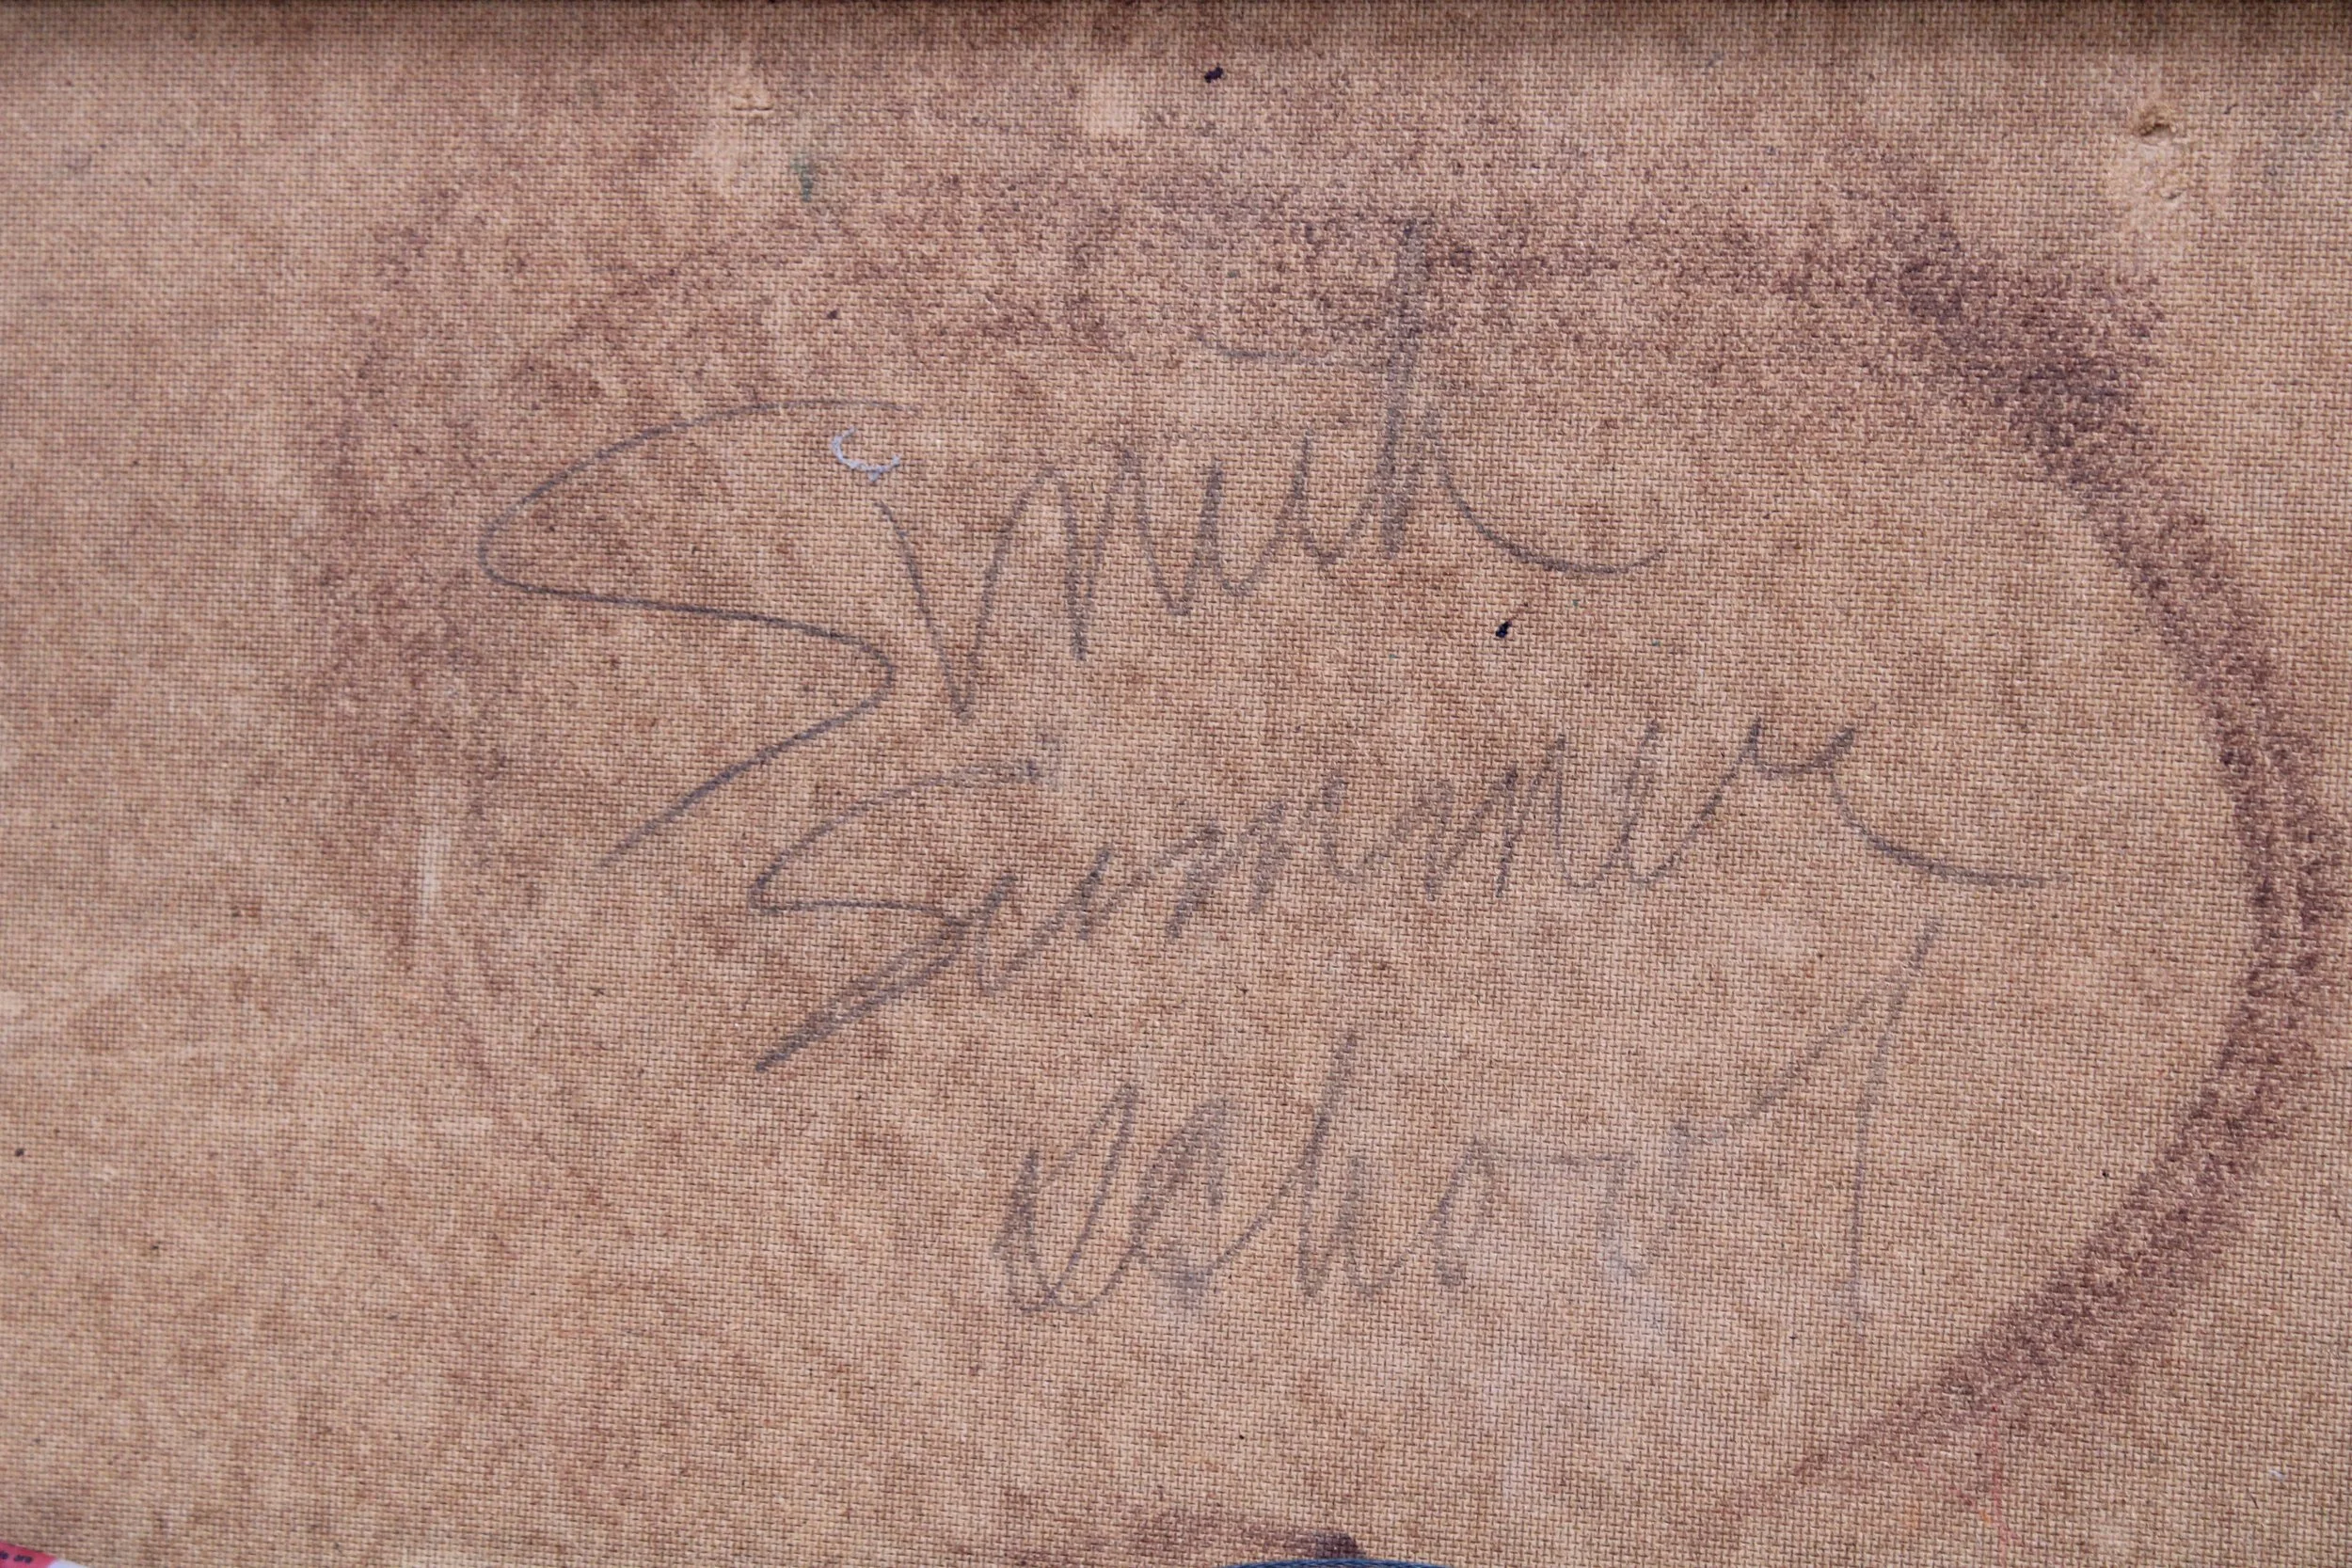 Smith
Summer
school